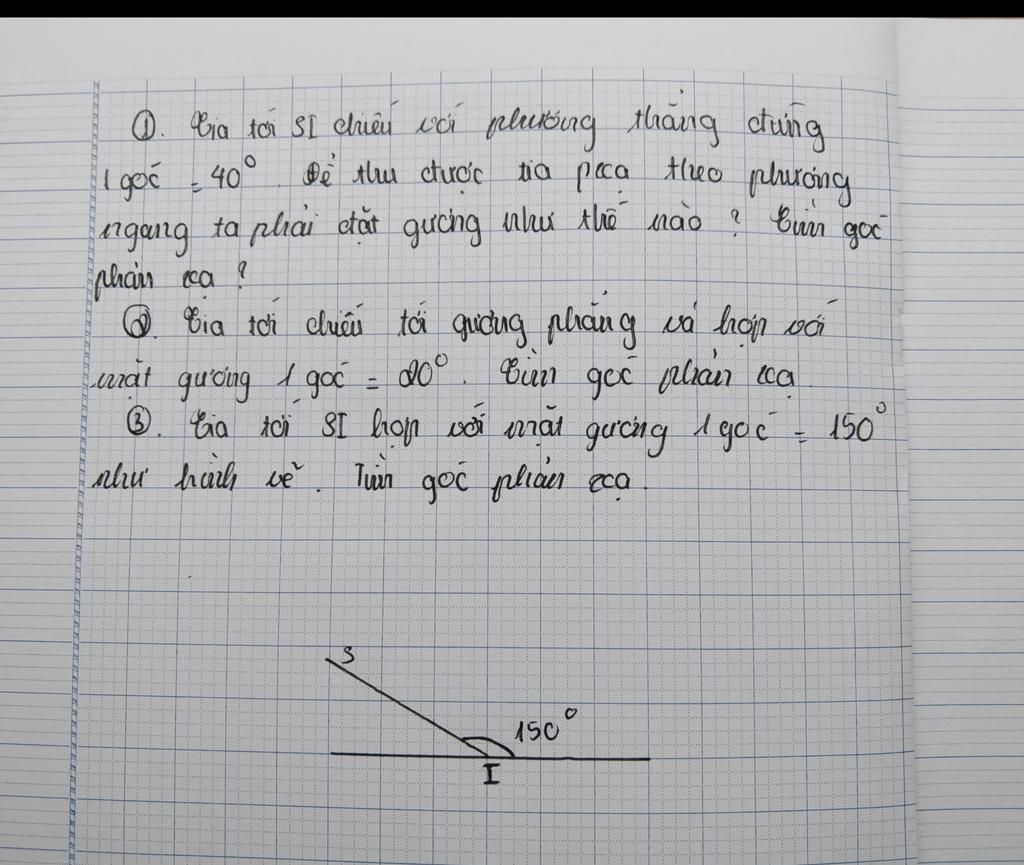 ①. Tia tới SI chiếu với phương thẳng đứng
1 góc = 40°. Để thu được tia pxạ theo phương
ngang ta phải đặt gương như thế nào? Tính góc
phản xạ?
②. Tia tới chiếu tới gương phẳng và hợp với
mặt gương 1 góc = 20°. Tính góc phản xạ
③. Tia tới SI hợp với mặt gương 1 góc = 150°
như hình vẽ. Tính góc phản xạ.
S
150°
I